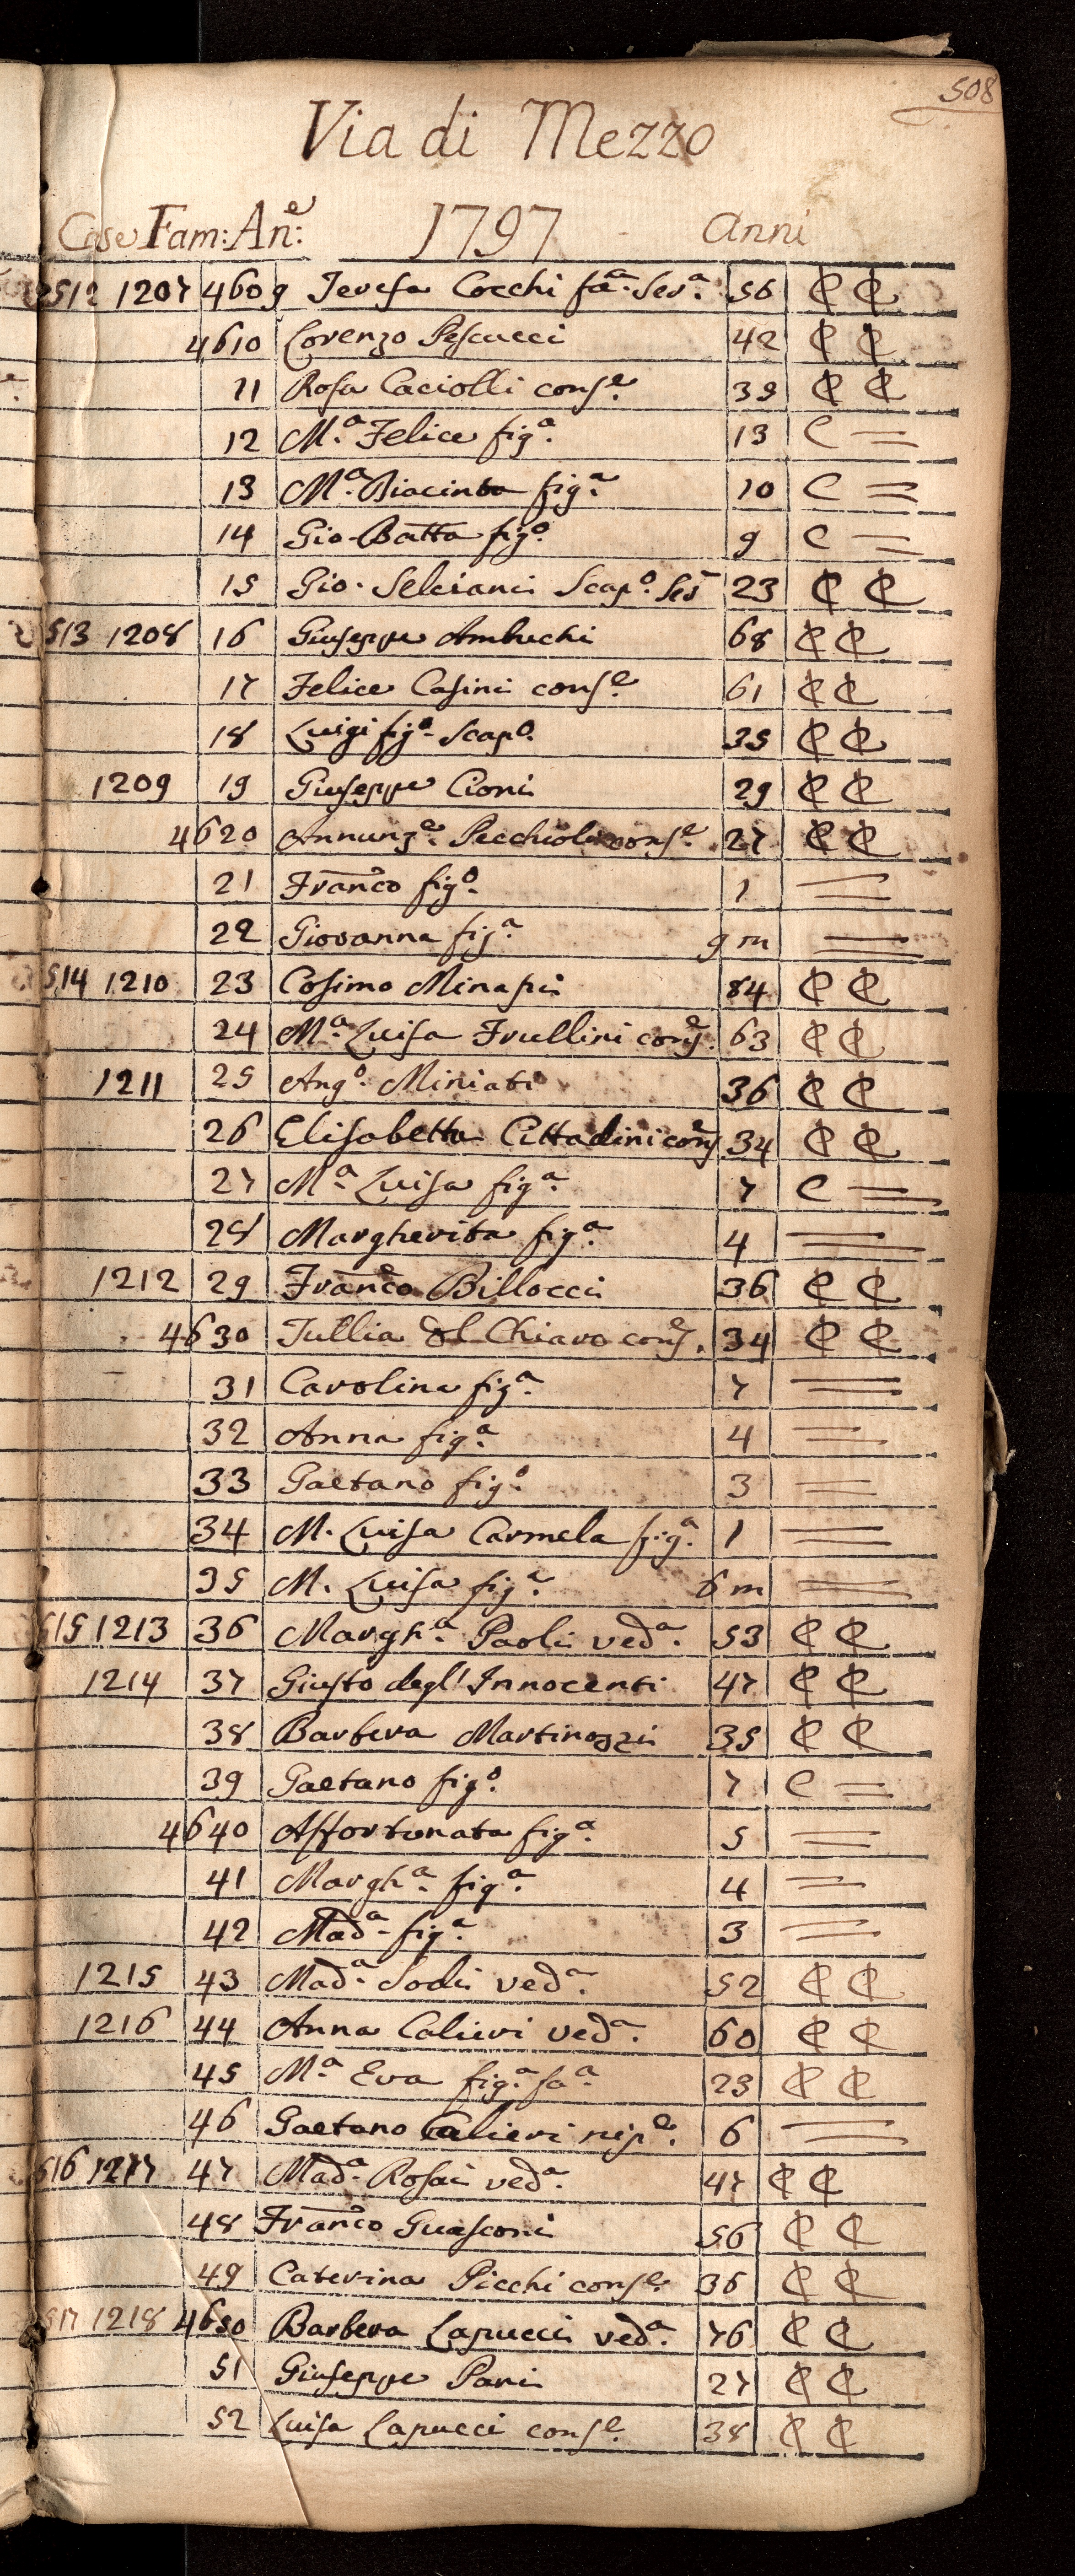 508
Via di Mezzo
Case Fam: An:e 1797 Anni
512 1207 4609 Teresa Cocchi fa:a Ser:a 56 C C
4610 Lorenzo Pescucci 42 C C
11 Rosa Caciolli cons:e 39 C C
12 M:a Felice fig:a 13 C =
13 M:a Giacinta fig:a 10 C =
14 Gio-Batta fig:o 9 C =
15 Gio. Selciani Scap:o Ser 23 C C
513 1208 16 Giuseppe Ambuchi 68 C C
17 Felice Casini cons:e 61 C C
18 Luigi fig:o Scap:o 35 C C
1209 19 Giuseppe Cioni 29 C C
4620 Annunz:a Pecchioli cons:e 27 C C
21 Franco fig:o 1 =
22 Giovanna fig:a 9 m =
514 1210 23 Cosimo 84 C C
24 M:a Luisa Frullini cons:e 63 C C
1211 25 Ang:o Miniati 36 C C
26 Elisabetta Cittadini cons 34 C C
27 M:a Luisa fig:a 7 C =
28 Margherita fig:a 4 =
1212 29 Franco Billocci 36 C C
4630 Tullia del Chiaro cons:e 34 C C
31 Carolina fig:a 7 =
32 Anna fig:a 4 =
33 Gaetano fig:o 3 =
34 M. Luisa Carmela fig:a 1 =
35 M. Luisa fig:a 6 m =
515 1213 36 Margh:a Paoli ved:a 53 C C
1214 37 Giusto degl' Innocenti 47 C C
38 Barbera Martinozzi 35 C C
39 Gaetano fig:o 7 C =
4640 Affortunata fig:a 5 =
41 Margh:a fig:a 4 =
42 Mad:a fig:a 3 =
1215 43 Mad:a Sodi ved:a 52 C C
1216 44 Anna Calieri ved:a 60 C C
45 M:a Eva fig:a fa:a 23 C C
46 Gaetano Calieri nip:e 6 =
516 1217 47 Mad:a Rosai ved:a 47 C C
48 Franco Guasconi 56 C C
49 Caterina Picchi cons:e 36 C C
517 1218 4650 Barbera Lapucci ved:a 76 C C
51 Giuseppe Pani 27 C C
52 Luisa Lapucci cons:e 38 C C